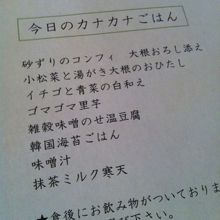 今日のカナカナごはん
砂ずりのコンフィ 大根おろし添え
小松菜と湯がき大根のおひたし
イチゴと青菜の白和え
ゴマゴマ里芋
雑穀味噌のせ温豆腐
韓国海苔ごはん
味噌汁
抹茶ミルク寒天
★食後にお飲み物がついておりま